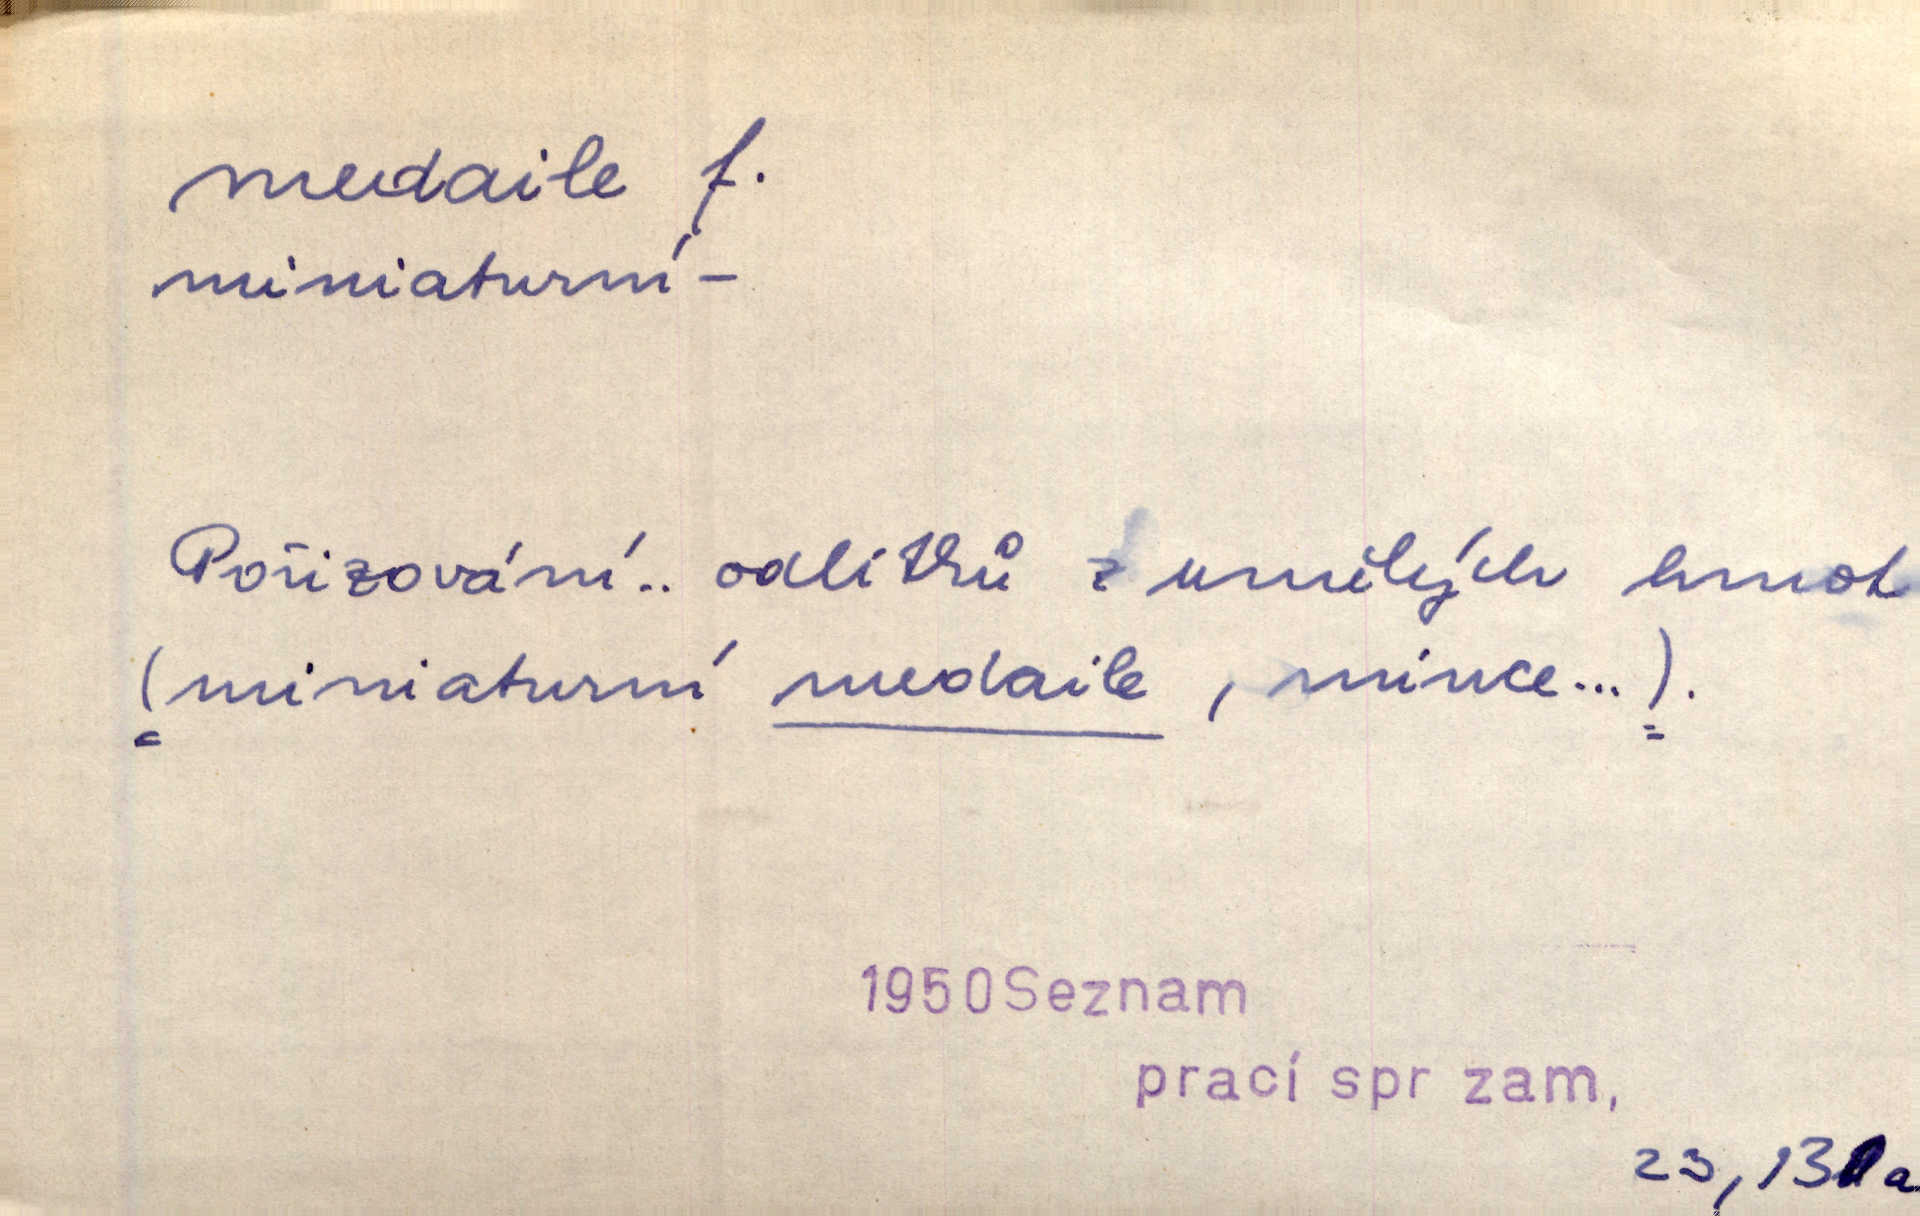 medaile f.
miniaturní -
Pořizování.. odlitků z umělých hmot
(miniaturní medaile, mince...).
1950Seznam
prací spr zam,
23, 131a